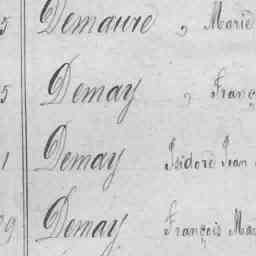 5 Demaure, Marie
5 Demay, Franç
1 Demay Isidore Jean
9 Demay François Ma